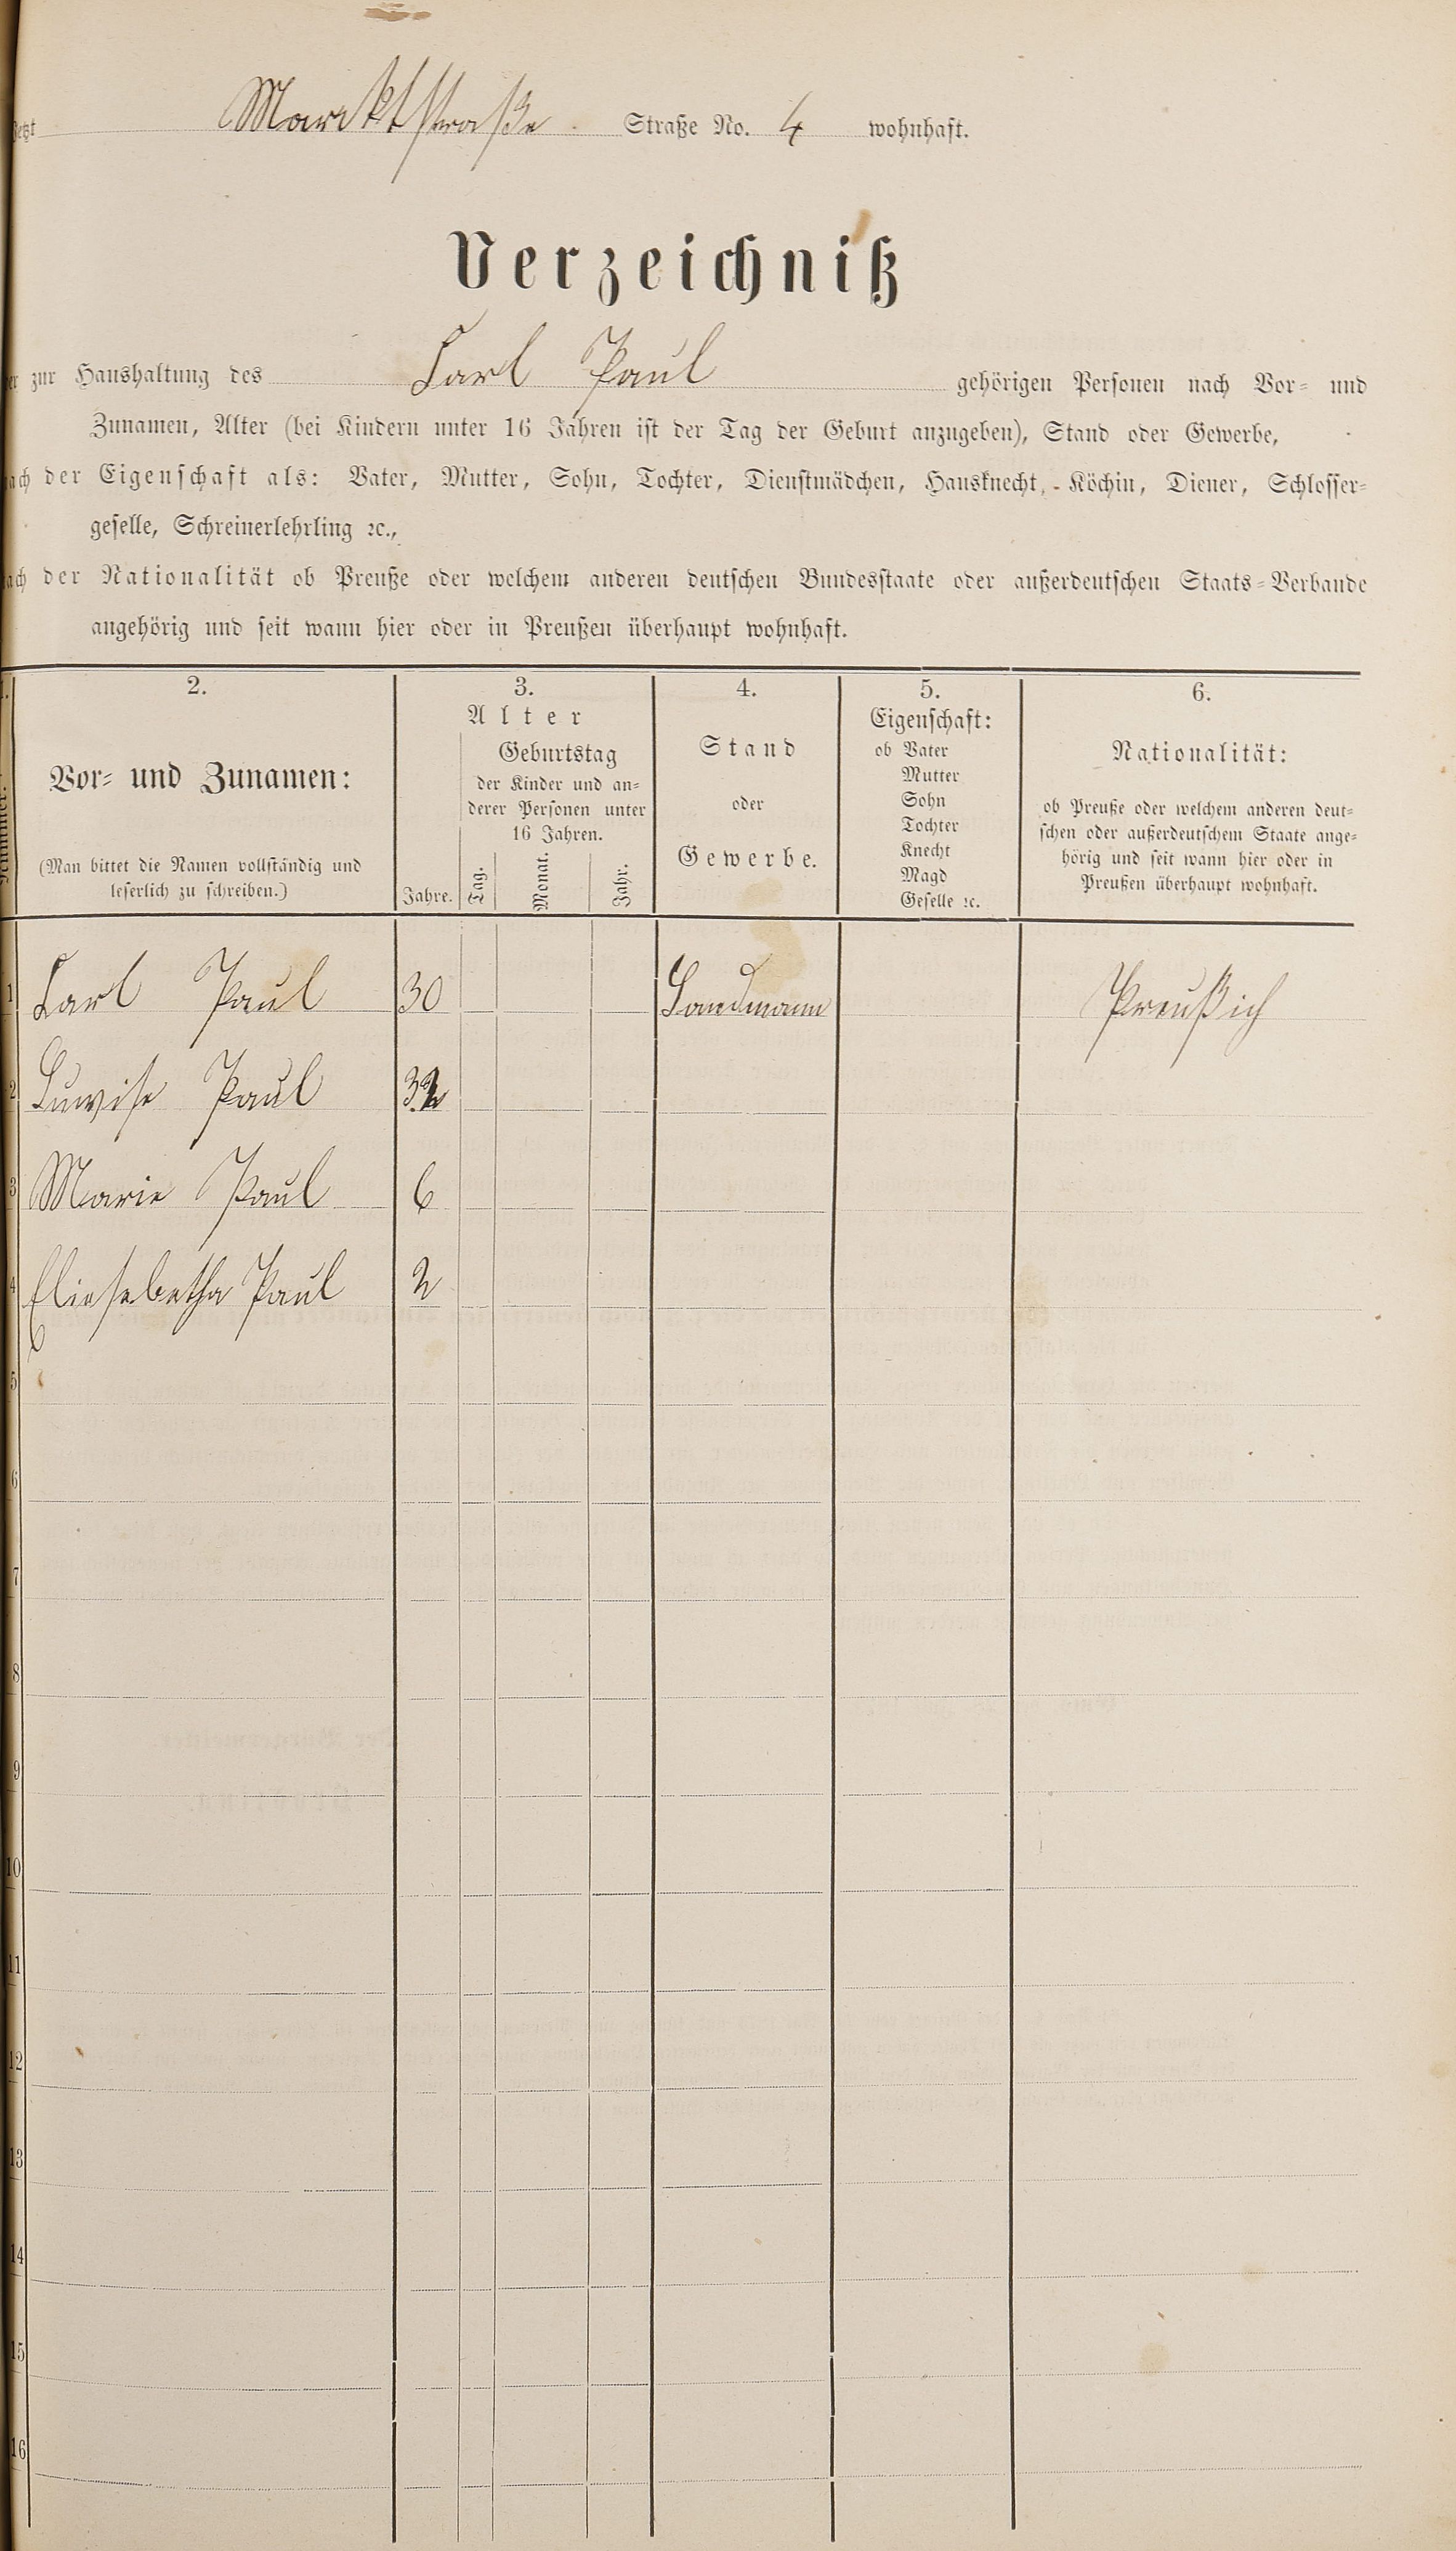 Jetzt Marcktstraße Straße No. 4 wohnhaft.
Verzeichniß
der zur Haushaltung des Carl Paul gehörigen Personen nach Vor- und
Zunamen, Alter (bei Kindern unter 16 Jahren ist der Tag der Geburt anzugeben), Stand oder Gewerbe,
nach der Eigenschaft als: Vater, Mutter, Sohn, Tochter, Dienstmädchen, Hausknecht, Köchin, Diener, Schlosser-
geselle, Schreinerlehrling ꝛc.,
nach der Nationalität ob Preuße oder welchem anderen deutschen Bundesstaate oder außerdeutschen Staats-Verbande
angehörig und seit wann hier oder in Preußen überhaupt wohnhaft.
1. 2. 3. 4. 5. 6.
Nummer.
Vor- und Zunamen:
(Man bittet die Namen vollständig und
leserlich zu schreiben.)
Alter
Jahre.
Geburtstag
der Kinder und an-
derer Personen unter
16 Jahren.
Tag. Monat. Jahr.
Stand
oder
Gewerbe.
Eigenschaft:
ob Vater
Mutter
Sohn
Tochter
Knecht
Magd
Geselle ꝛc.
Nationalität:
ob Preuße oder welchem anderen deut-
schen oder außerdeutschem Staate ange-
hörig und seit wann hier oder in
Preußen überhaupt wohnhaft.
1 Carl Paul 30 Landmann Preußich
2 Luwise Paul 32
3 Marie Paul 6
4 Eliesabetha Paul 2
5
6
7
8
9
10
11
12
13
14
15
16